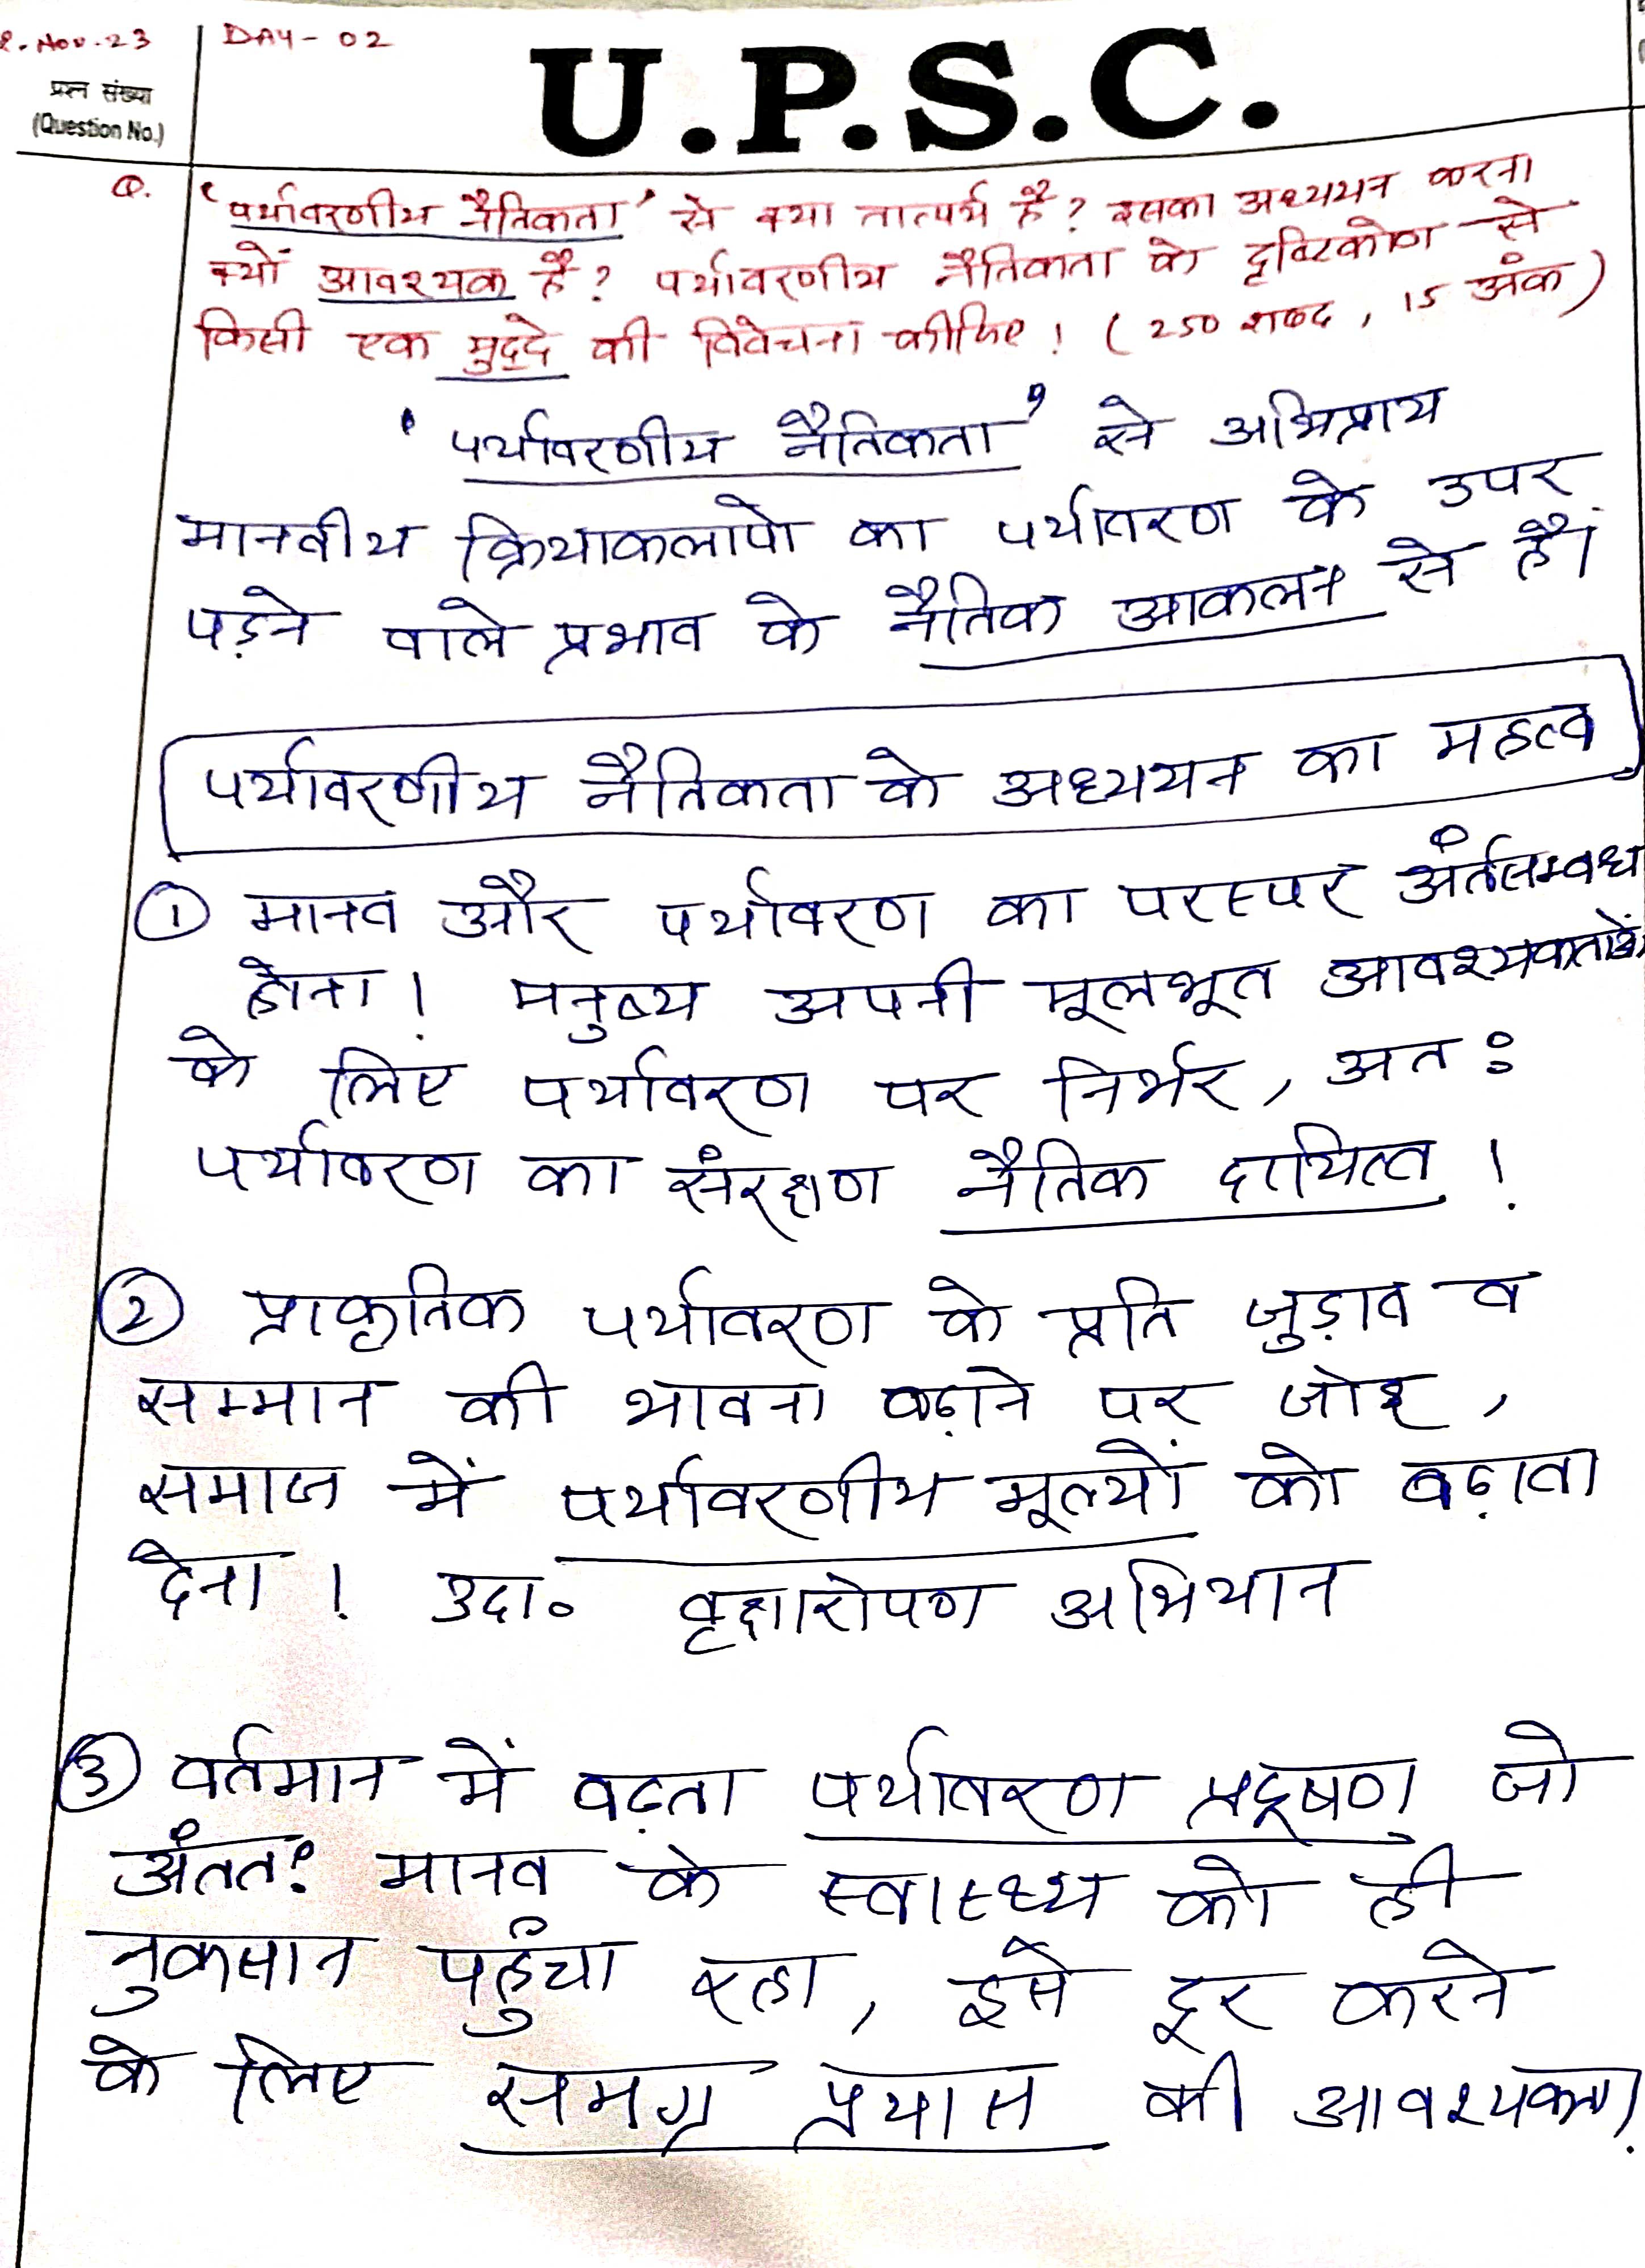 2. Nov. 23
DAY - 02
U.P.S.C.
प्रश्न संख्या
(Question No.)
Q. 'पर्यावरणीय नैतिकता' से क्या तात्पर्य है? इसका अध्ययन करना
क्यों आवश्यक है? पर्यावरणीय नैतिकता के दृष्टिकोण से
किसी एक मुद्दे की विवेचना कीजिए। (250 शब्द, 15 अंक)
'पर्यावरणीय नैतिकता' से अभिप्राय
मानवीय क्रियाकलापो का पर्यावरण के उपर
पड़ने वाले प्रभाव के नैतिक आकलन से है।
पर्यावरणीय नैतिकता के अध्ययन का महत्व
① मानव और पर्यावरण का परस्पर अंर्तसम्बंध
होना। मनुष्य अपनी मूलभूत आवश्यकताओं
के लिए पर्यावरण पर निर्भर, अतः
पर्यावरण का संरक्षण नैतिक दायित्व।
② प्राकृतिक पर्यावरण के प्रति जुड़ाव व
सम्मान की भावना बढ़ाने पर जोर,
समाज में पर्यावरणीय मूल्यों को बढ़ावा
देना। उदा० वृक्षारोपण अभियान
③ वर्तमान में बढ़ता पर्यावरण प्रदूषण जो
अंततः मानव के स्वास्थ्य को ही
नुकसान पहुंचा रहा, इसे दूर करने
के लिए समग्र प्रयास की आवश्यकता।